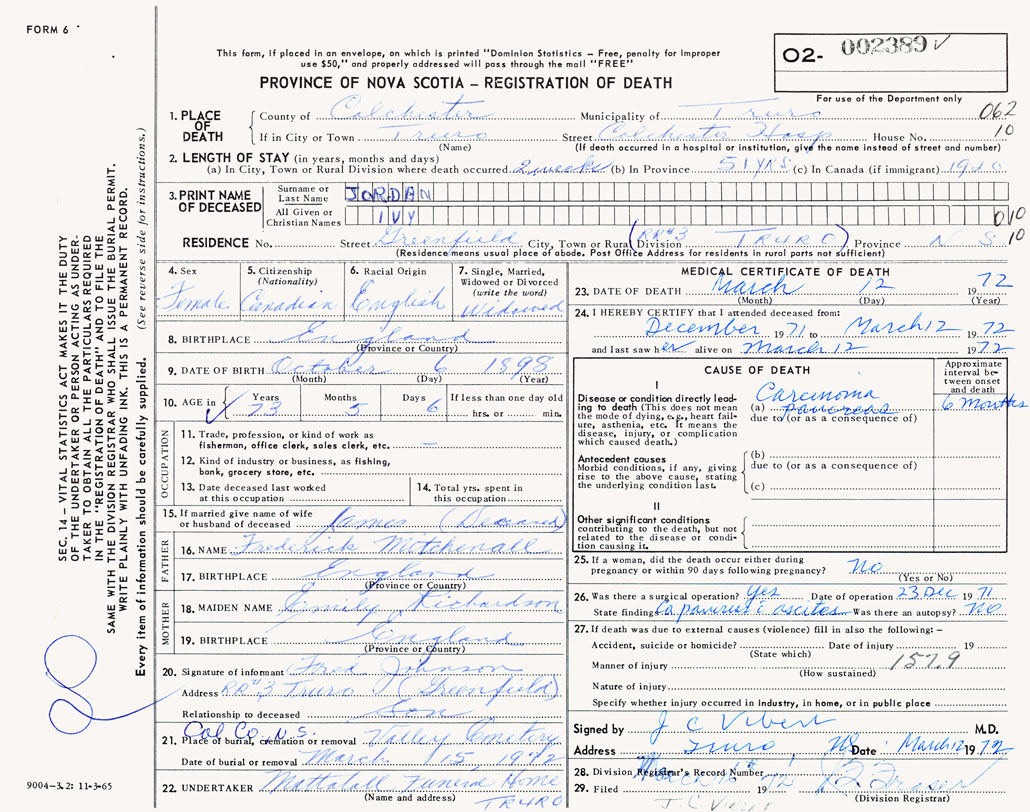 FORM 6
This form, if placed in an envelope, on which is printed "Dominion Statistics – Free, penalty for improper
use $50," and properly addressed will pass through the mail "FREE"
PROVINCE OF NOVA SCOTIA – REGISTRATION OF DEATH
O2- 002389
For use of the Department only
1. PLACE OF DEATH
County of Colchester Municipality of Truro 062
If in City or Town Truro Street Colchester Hosp House No. 10
(Name) (If death occurred in a hospital or institution, give the name instead of street and number)
2. LENGTH OF STAY (in years, months and days)
(a) In City, Town or Rural Division where death occurred 2 weeks (b) In Province 51 yrs. (c) In Canada (if immigrant) 1920
3. PRINT NAME OF DECEASED
Surname or Last Name JORDAN
All Given or Christian Names IVY 010
RESIDENCE No. Street Greenfield City, Town or Rural Division (RR#3 TRURO) Province N.S. 10
(Residence means usual place of abode. Post Office Address for residents in rural parts not sufficient)
4. Sex Female
5. Citizenship (Nationality) Canadian
6. Racial Origin English
7. Single, Married, Widowed or Divorced (write the word) Widowed
8. BIRTHPLACE England
(Province or Country)
9. DATE OF BIRTH October 6 1898
(Month) (Day) (Year)
10. AGE in Years 73 Months 5 Days 6 If less than one day old hrs. or min.
OCCUPATION
11. Trade, profession, or kind of work as fisherman, office clerk, sales clerk, etc. –
12. Kind of industry or business, as fishing, bank, grocery store, etc.
13. Date deceased last worked at this occupation
14. Total yrs. spent in this occupation
15. If married give name of wife or husband of deceased James (Deceased)
FATHER
16. NAME Frederick Mitchenall
17. BIRTHPLACE England
(Province or Country)
MOTHER
18. MAIDEN NAME Emily Richardson
19. BIRTHPLACE England
(Province or Country)
20. Signature of informant Fred Johnson
Address RR#3 Truro (Greenfield)
Relationship to deceased Son
Col Co., N.S.
21. Place of burial, cremation or removal Valley Cemetery
Date of burial or removal March 15, 1972
22. UNDERTAKER Mattatall Funeral Home
(Name and address) TRURO
MEDICAL CERTIFICATE OF DEATH
23. DATE OF DEATH March 12 1972
(Month) (Day) (Year)
24. I HEREBY CERTIFY that I attended deceased from:
December 1971 to March 12 1972
and last saw her alive on March 12 1972
CAUSE OF DEATH
Approximate interval between onset and death
I
Disease or condition directly leading to death (This does not mean the mode of dying, e.g., heart failure, asthenia, etc. It means the disease, injury, or complication which caused death.)
(a) Carcinoma pancreas 6 months
due to (or as a consequence of)
Antecedent causes
Morbid conditions, if any, giving rise to the above cause, stating the underlying condition last.
(b)
due to (or as a consequence of)
(c)
II
Other significant conditions
contributing to the death, but not related to the disease or condition causing it.
25. If a woman, did the death occur either during pregnancy or within 90 days following pregnancy? No
(Yes or No)
26. Was there a surgical operation? Yes Date of operation 23 Dec 1971
State finding Ca pancreas c ascites Was there an autopsy? No
27. If death was due to external causes (violence) fill in also the following: –
Accident, suicide or homicide? Date of injury 19
(State which)
Manner of injury 157.9
(How sustained)
Nature of injury
Specify whether injury occurred in Industry, in home, or in public place
Signed by J C Vibert M.D.
Address Truro, NS Date March 12 1972
28. Division Registrar's Record Number
29. Filed March 16 1972 Fraser
(Division Registrar)
J.C. Vibert
SEC. 14 – VITAL STATISTICS ACT MAKES IT THE DUTY
OF THE UNDERTAKER OR PERSON ACTING AS UNDER-
TAKER TO OBTAIN ALL THE PARTICULARS REQUIRED
IN THE "REGISTRATION OF DEATH" AND TO FILE THE
SAME WITH THE DIVISION REGISTRAR WHO SHALL ISSUE THE BURIAL PERMIT.
WRITE PLAINLY WITH UNFADING INK. THIS IS A PERMANENT RECORD.
Every item of information should be carefully supplied. (See reverse side for instructions.)
9004-3.2: 11-3-65